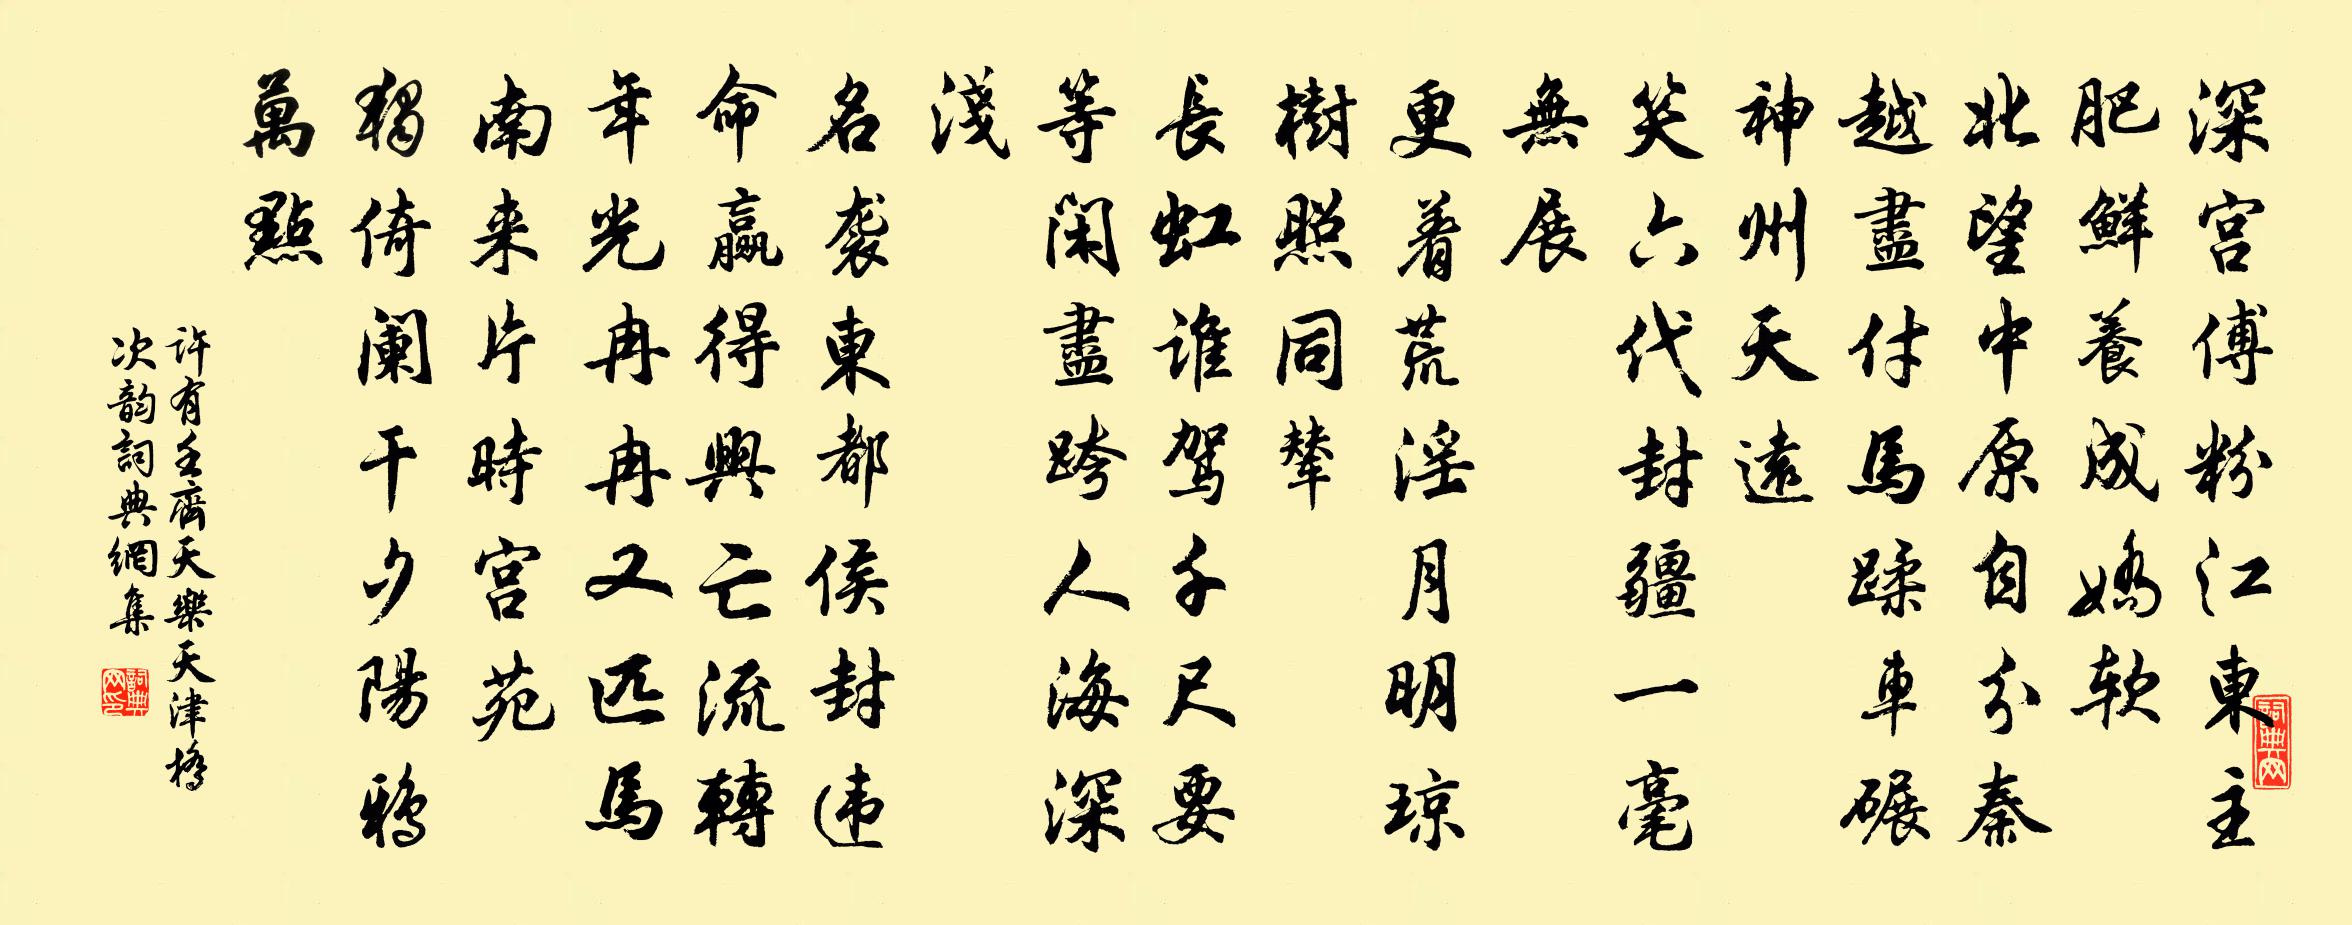 深宮傅粉江東主
肥鮮養成嬌軟
北望中原自分秦
越盡付馬蹂車碾
神州天遠
笑六代封疆一毫
無展
更着荒淫月明琼
樹照同輦
長虹谁駕千尺要
等闲盡跨人海深
淺
名袭東都侯封违
命贏得興亡流轉
年光冉冉又匹馬
南来片時宮苑
獨倚阑干夕陽鴉
萬點
许有壬齊天樂天津橋
次韵詞典網集
詞典网
詞典网印